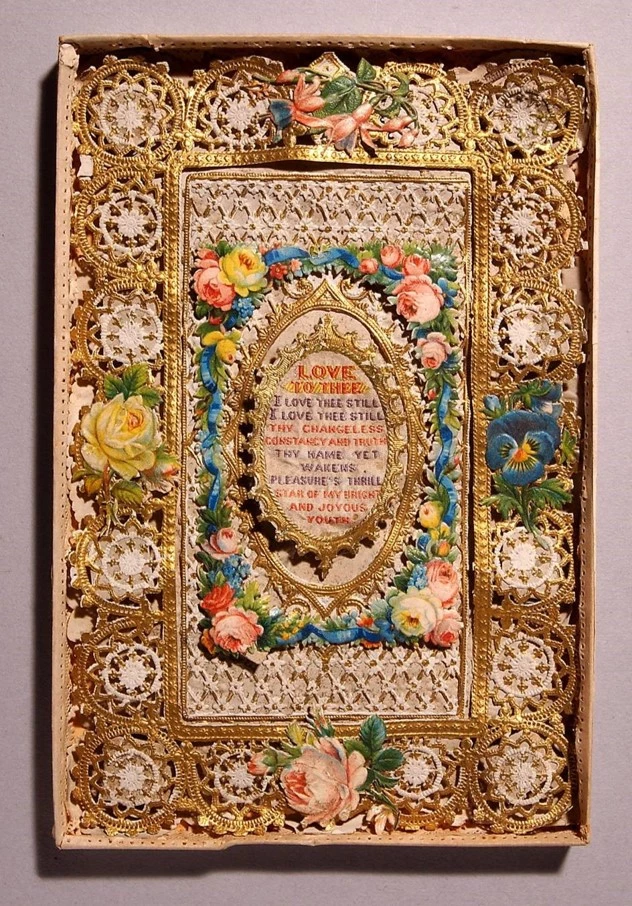 LOVE
TO THEE
I LOVE THEE STILL
I LOVE THEE STILL
THY CHANGELESS
CONSTANCY AND TRUTH
THY NAME YET
WAKENS
PLEASURE'S THRILL
STAR OF MY BRIGHT
AND JOYOUS
YOUTH